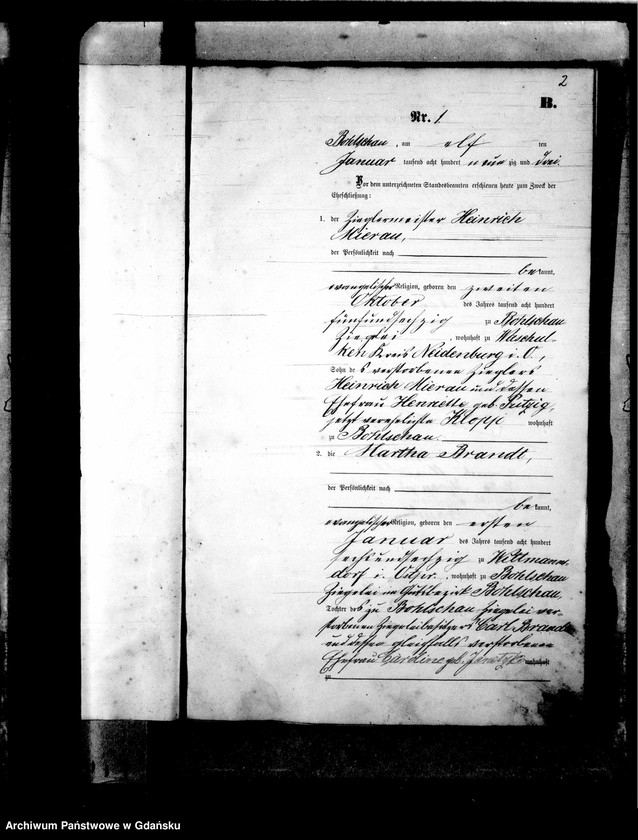 2
B.
Nr. 1
Bohlschau, am elf ten
Januar tausend acht hundert neun zig und drei.
Vor dem unterzeichneten Standesbeamten erschienen heute zum Zweck der
Eheschließung:
1. der Zieglermeister Heinrich
Mierau,
der Persönlichkeit nach
bekannt,
evangelischer Religion, geboren den zweiten
Oktober des Jahres tausend acht hundert
fünfundsechzig zu Bohlschau
Ziegelei, wohnhaft zu
Kreis Neidenburg i. O.,
Sohn des verstorbenen Zieglers
Heinrich Mierau und dessen
Ehefrau Henriette geb.
jetzt verehelichte wohnhaft
zu Bohlschau.
2. die Martha Brandt,
der Persönlichkeit nach
bekannt,
evangelischer Religion, geboren den ersten
Januar des Jahres tausend acht hundert
sechsundsechzig zu
dorf i. Ostpr., wohnhaft zu Bohlschau
Ziegelei im Gutsbezirk Bohlschau
Tochter des zu Bohlschau Ziegelei ver-
storbenen Ziegeleibesitzers Carl Brandt
und dessen gleichfalls verstorbenen
Ehefrau geb. wohnhaft
zu
Archiwum Państwowe w Gdańsku